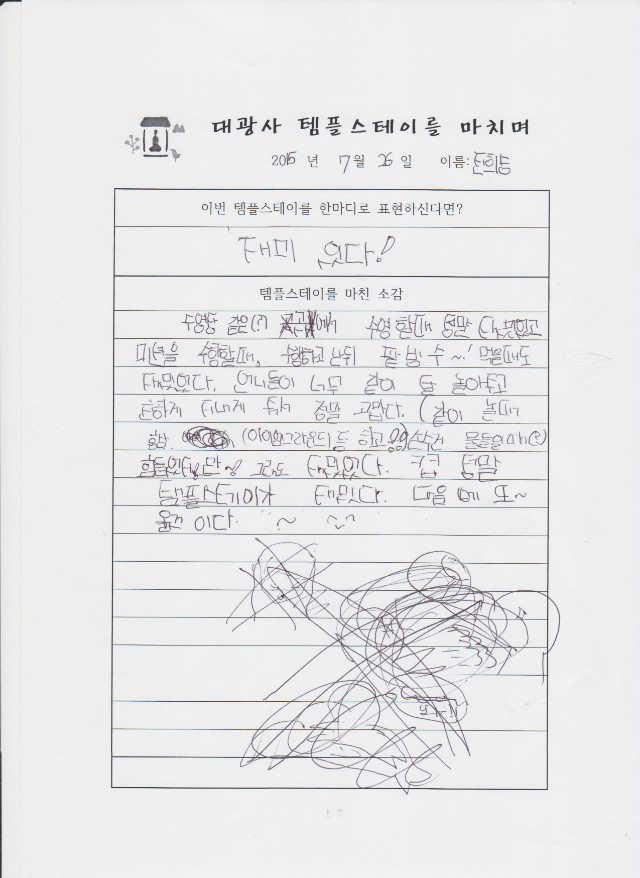 대광사 템플스테이를 마치며
2015 년 7 월 26 일 이름:
이번 템플스테이를 한마디로 표현하신다면?
재미 있다!
템플스테이를 마친 소감
수영장 같은(?) 에서 수영 할때 정말
을 수행할때, 수행하고 난뒤 팥 빙 수 ~! 먹을때도
재밌었다. 언니들이 너무 같이 잘 놀아주고
친하게 지내게 해줘서 정말 고맙다. (같이 놀때
(아이엠그라운드) 등 하고 수건 물들이기(?)
힘들었지만 그래도 재밌었다. 정말
템플스테이가 재밌다. 다음 에 또~
이다. ~